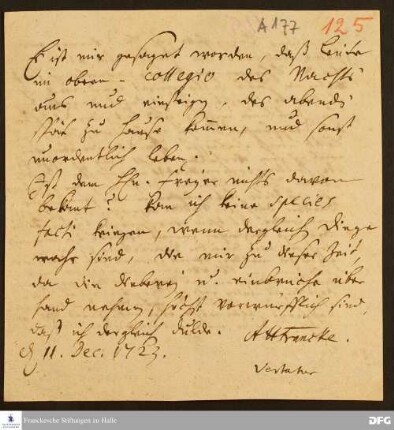 A 177 125
Es ist mir gesaget worden, daß Leute
im obern-Collegio des Nachts
aus und einsteign, des abends
spät zu Hause kommen, und sonst
unordentlich leben.
Ist dem Hn. Freyer nichts davon
bekant? kan ich keine species
facti kriegen, wenn dergleich. Dinge
wahr sind, die mir zu dieser Zeit,
da die Dieberej u. einbrüche über
hand nehmen, höchst verwürfflich sind,
daß ich dergleich dulde. AHFrancke.
d. 11. Dec. 1723.
Vertatur
Franckesche Stiftungen zu Halle
DFG